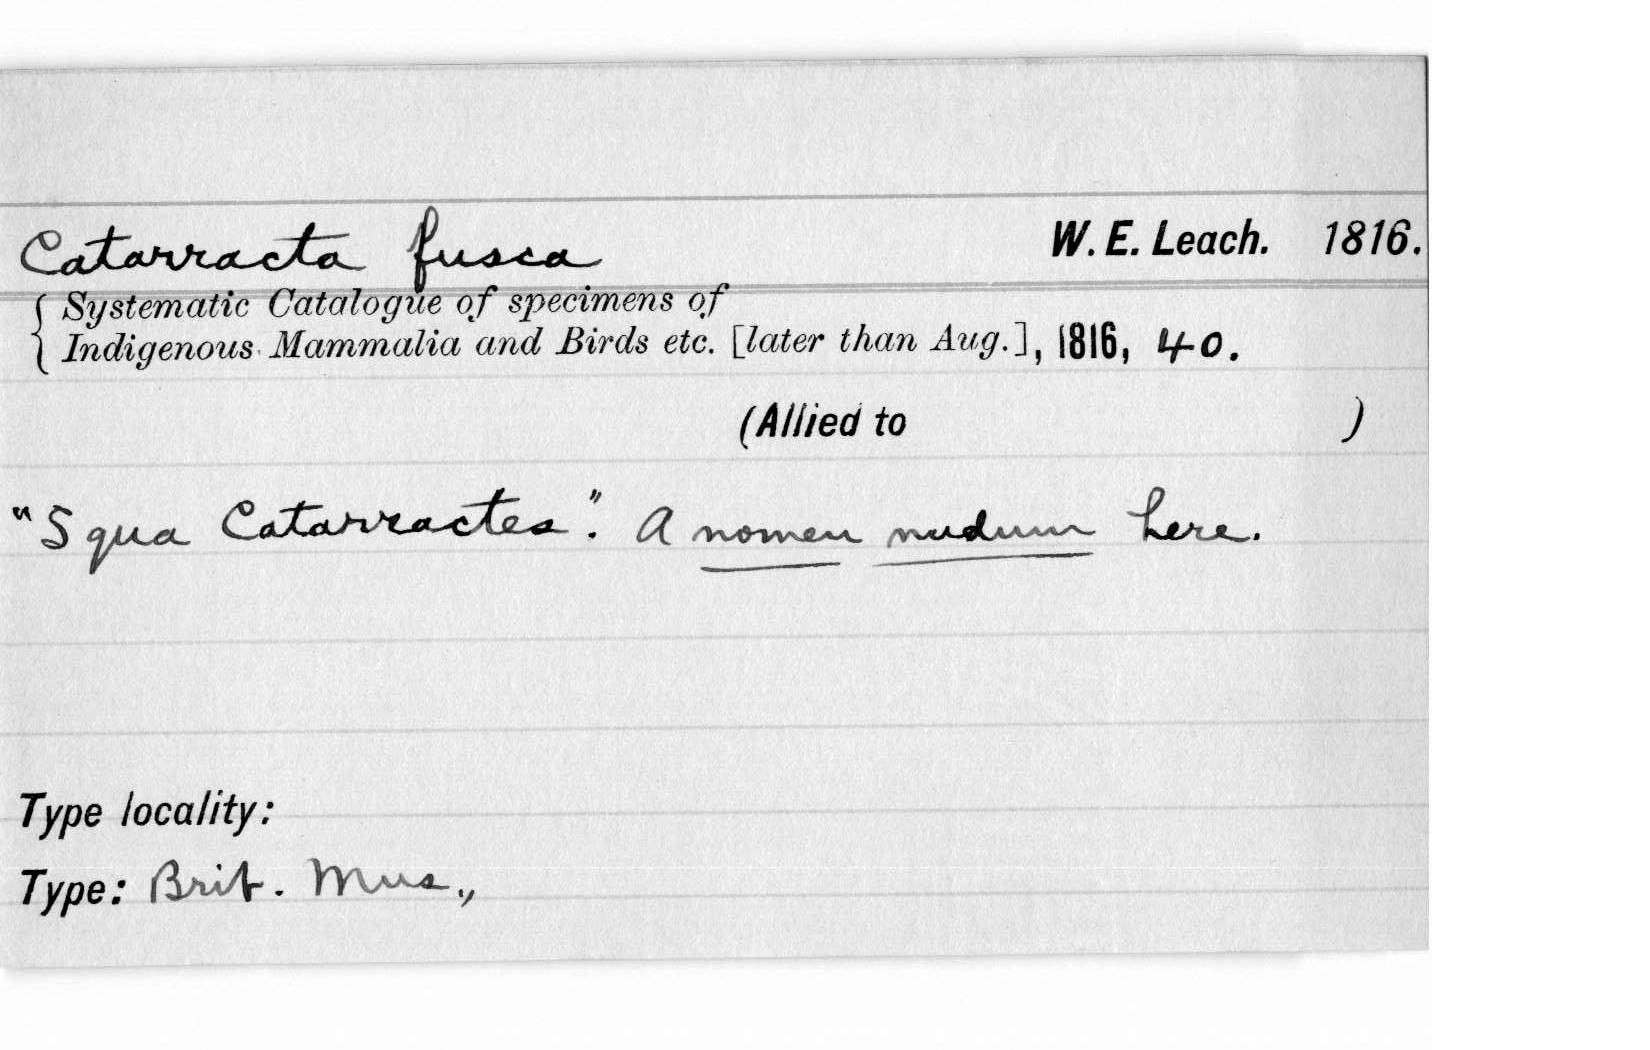 Catarracta fusca W. E. Leach. 1816.
{ Systematic Catalogue of specimens of
Indigenous Mammalia and Birds etc. [later than Aug.], 1816, 40.
(Allied to )
"Squa Catarractes". A nomen nudum here.
Type locality:
Type: Brit. Mus.,